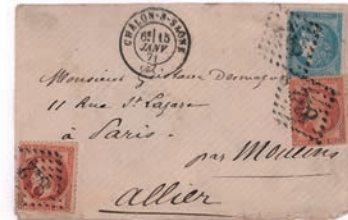 CHALON-S-SAÔNE
6E 15
JANV
71
Monsieur Gustave
11 Rue St Lazare
à Paris.
par Moulins
Allier